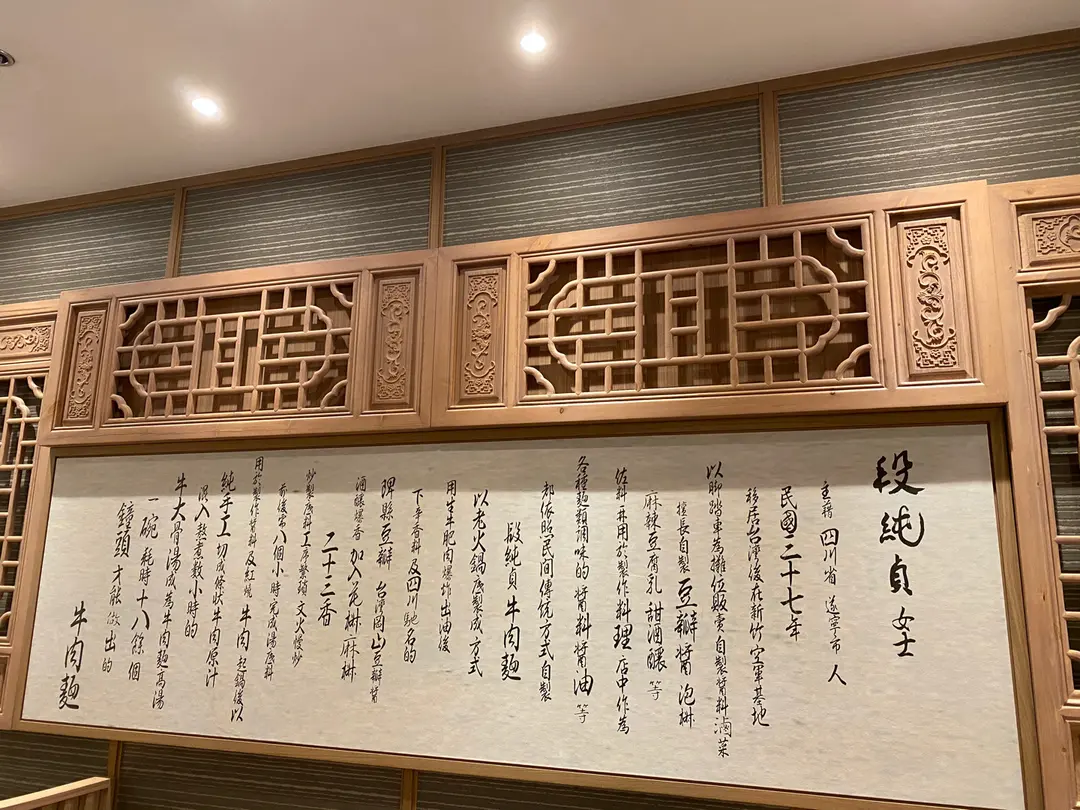 段純貞女士
主籍四川省遂寧市人
民國二十七年
移居台灣後在新竹空軍基地
以腳踏車為攤位販賣自製醬料滷菜
擅長自製豆瓣醬泡椒
麻辣豆腐乳甜酒釀等
佐料再用於製作料理店中作為
各種麵類調味的醬料醬油等
都依照民間傳統方式自製
段純貞牛肉麵
以老火鍋底製成方式
用生牛肥肉爆炸出油後
下辛香料及四川馳名的
陴縣豆瓣台灣岡山豆瓣醬
酒釀爆香加入花椒麻椒
二十三香
炒製底料工序繁瑣文火慢炒
前後需八個小時完成湯底料
用於製作醬料及紅燒牛肉起鍋後以
純手工切成條狀牛肉原汁
混入熬煮數小時的
牛大骨湯成為牛肉麵高湯
一碗耗時十八餘個
鐘頭才能做出的
牛肉麵